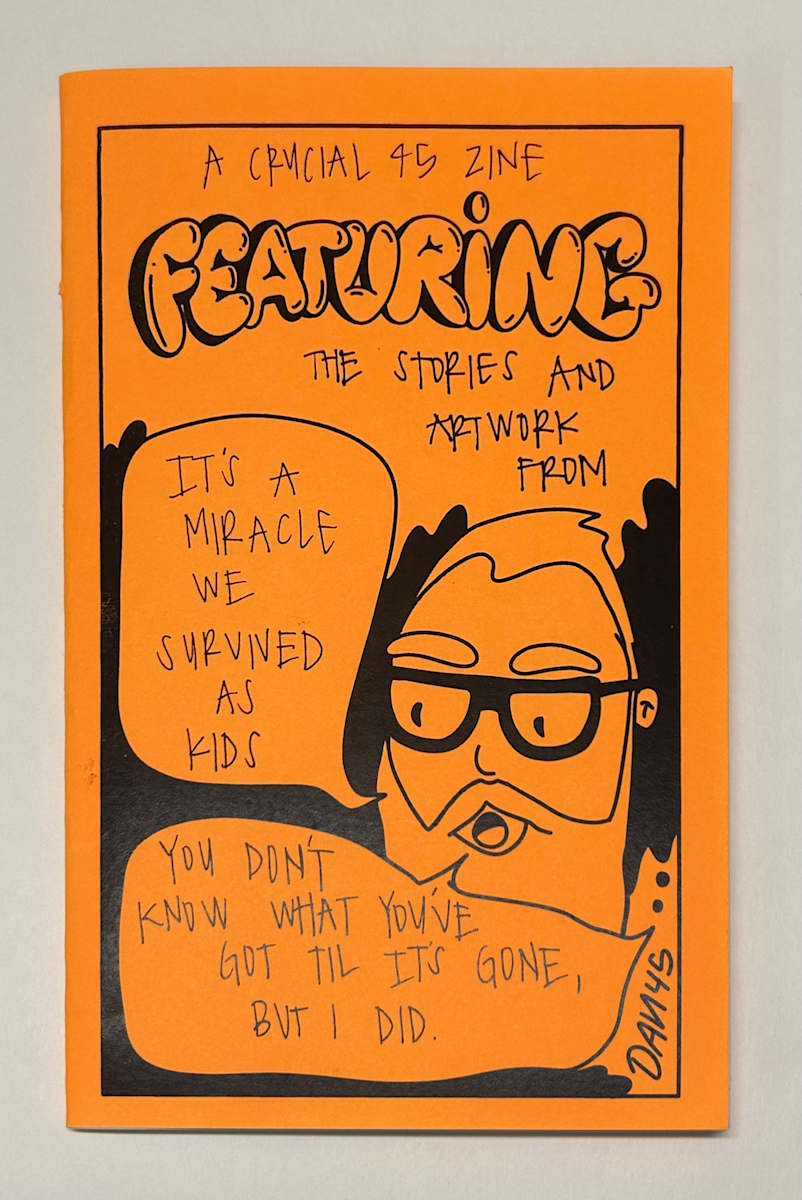 A CRUCIAL 45 ZINE
FEATURING
THE STORIES AND
ARTWORK
FROM
IT'S A
MIRACLE
WE
SURVIVED
AS
KIDS
YOU DON'T
KNOW WHAT YOU'VE
GOT TIL IT'S GONE,
BUT I DID.
DAN45